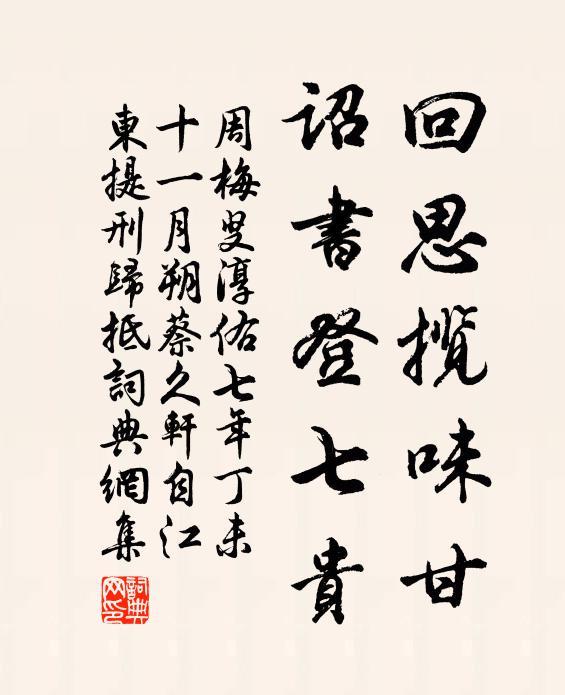 回思揽味甘
詔書登七貴
周梅叟淳佑七年丁未
十一月朔蔡久軒自江
東提刑歸抵詞典網集
詞典
网印